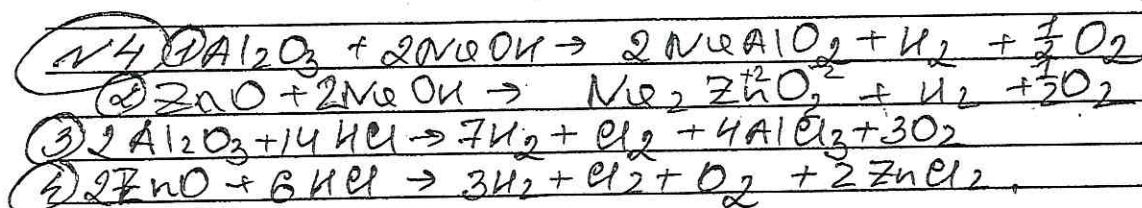 №4 ① Al₂O₃ + 2NaOH → 2NaAlO₂ + H₂ + ½O₂
② ZnO + 2NaOH → Na₂Zn⁺²O₂⁻² + H₂ + ½O₂
③ 2Al₂O₃ + 14HCl → 7H₂ + Cl₂ + 4AlCl₃ + 3O₂
④ 2ZnO + 6HCl → 3H₂ + Cl₂ + O₂ + 2ZnCl₂.